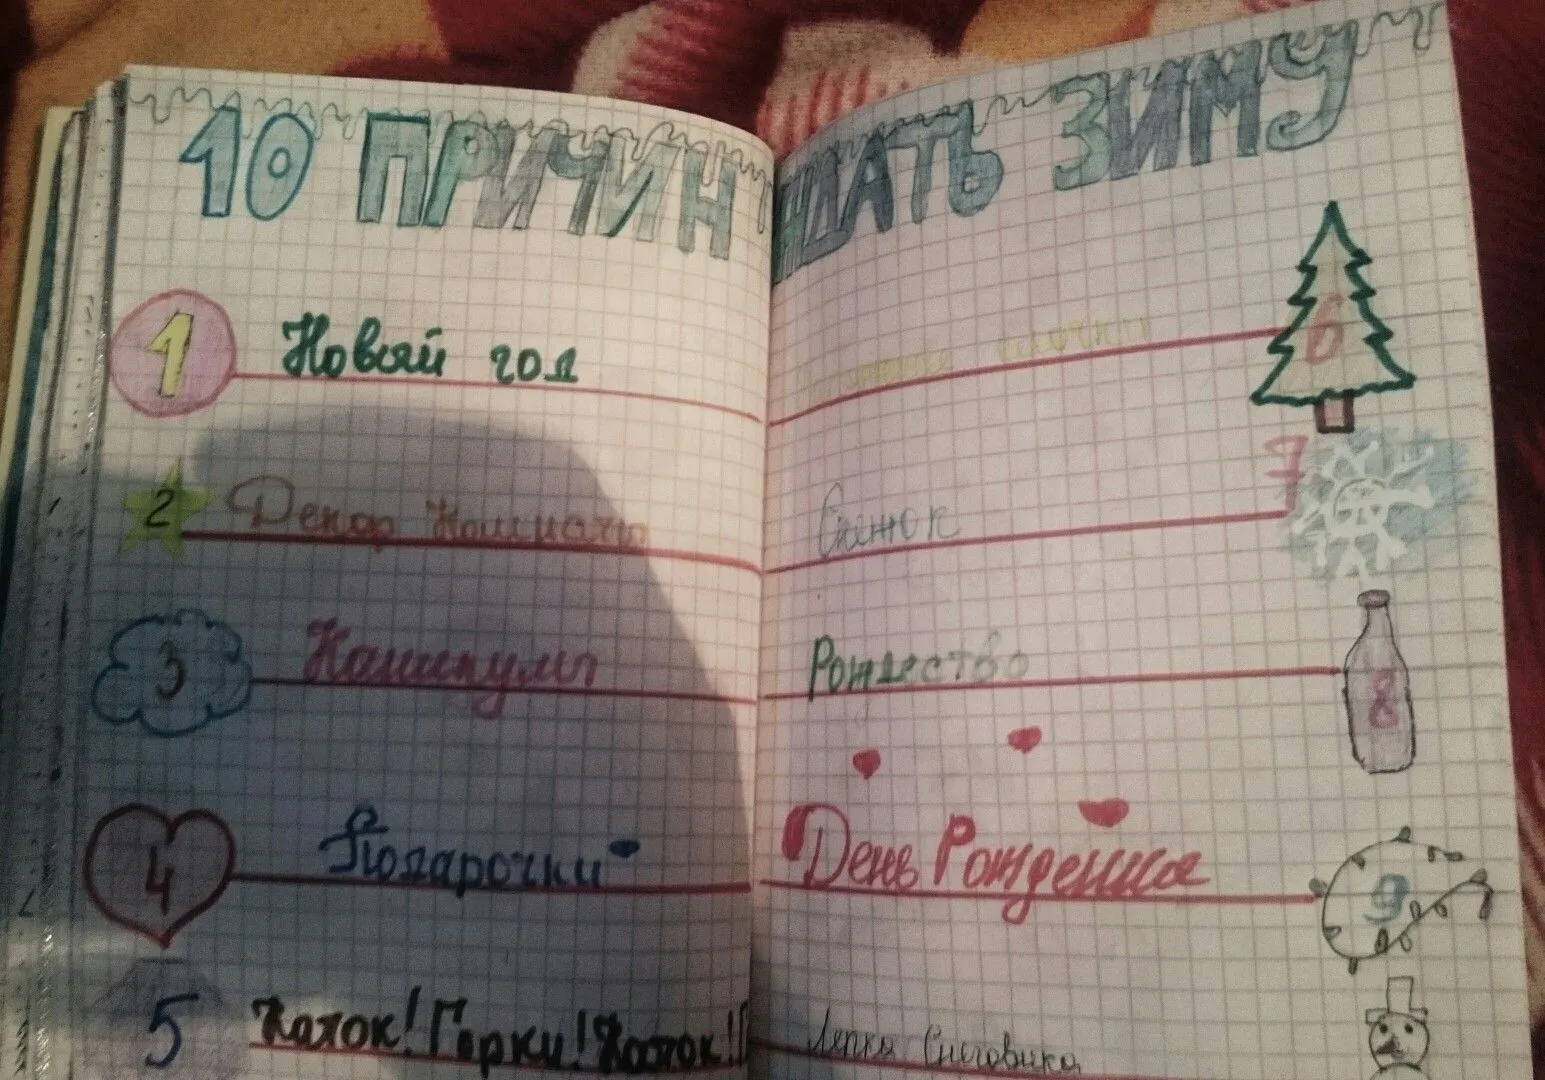 10 ПРИЧИН ЖДАТЬ ЗИМУ
1 Новый год
2 Декор комнаты
3 Каникулы
4 Подарочки
5 Каток! Горки! Каток!
6
7 Снежок
8 Рождество
9 День Рождения
Лепка Снеговика